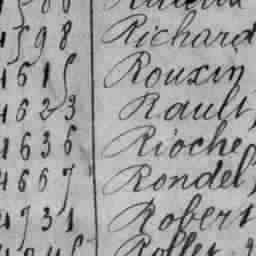 4598 Richard
4615 Rouxin
4623 Rault,
4636 Rioche,
4667 Rondel,
4731 Robert
Rollet